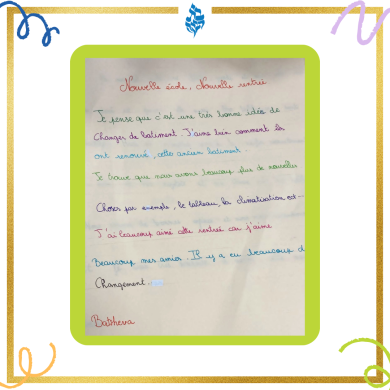 Nouvelle école, Nouvelle rentrée
Je pense que c'est une très bonne idée de
Changer de batiment. J'aime bien comment ils
ont renové, cette ancien batiment
Je trouve que nous avons beaucoup plus de nouvelles
Choses par exemple, le tableau, la climatisation ect-
J'ai beaucoup aimé cette rentrée car j'aime
Beaucoup mes amies. Il y a eu beaucoup d
Changement.
Batsheva